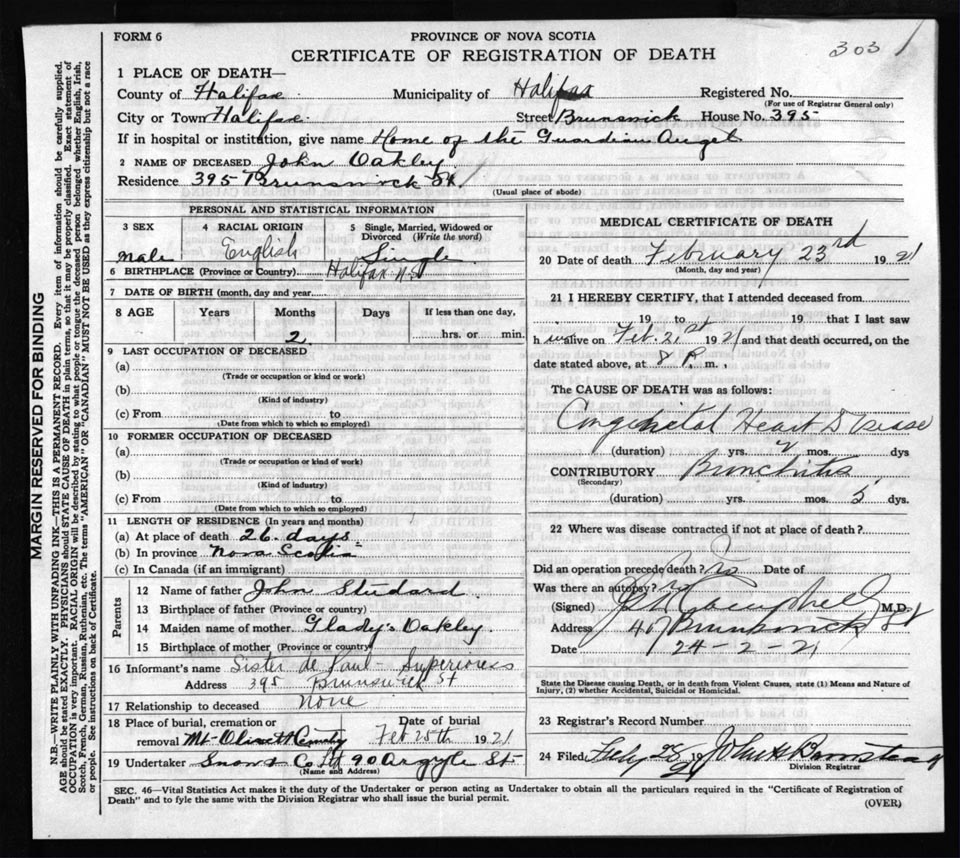 FORM 6
PROVINCE OF NOVA SCOTIA
303 1
CERTIFICATE OF REGISTRATION OF DEATH
MARGIN RESERVED FOR BINDING
N.B.—WRITE PLAINLY WITH UNFADING INK—THIS IS A PERMANENT RECORD. Every item of information should be carefully supplied.
AGE should be stated EXACTLY. PHYSICIANS should STATE CAUSE OF DEATH in plain terms, so that it may be properly classified. Exact statement of
OCCUPATION is very important. RACIAL ORIGIN will be described by stating to what people or tongue the deceased person belonged whether English, Irish,
Scotch, French, German, Russian, Ruthenian, etc. The terms "AMERICAN" OR "CANADIAN" MUST NOT BE USED as they express citizenship but not a race
or people. See instructions on back of Certificate.
1 PLACE OF DEATH—
County of Halifax Municipality of Halifax Registered No.
(For use of Registrar General only)
City or Town Halifax Street Brunswick House No. 395
If in hospital or institution, give name Home of the Guardian Angel
2 NAME OF DECEASED John Oakley
Residence 395 Brunswick St.
(Usual place of abode)
PERSONAL AND STATISTICAL INFORMATION
3 SEX 4 RACIAL ORIGIN 5 Single, Married, Widowed or
Divorced (Write the word)
Male English Single
6 BIRTHPLACE (Province or Country) Halifax N.S.
7 DATE OF BIRTH (month, day and year)
8 AGE Years Months Days If less than one day,
2 hrs. or min.
9 LAST OCCUPATION OF DECEASED
(a)
(Trade or occupation or kind of work)
(b)
(Kind of industry)
(c) From to
(Date from which to which so employed)
10 FORMER OCCUPATION OF DECEASED
(a)
(Trade or occupation or kind of work)
(b)
(Kind of industry)
(c) From to
(Date from which to which so employed)
11 LENGTH OF RESIDENCE (In years and months)
(a) At place of death 26 days
(b) In province Nova Scotia
(c) In Canada (if an immigrant)
Parents
12 Name of father John Studard
13 Birthplace of father (Province or country)
14 Maiden name of mother Gladys Oakley
15 Birthplace of mother (Province or country)
16 Informant's name Sister de Paul - Superioress
Address 395 Brunswick St
17 Relationship to deceased None
18 Place of burial, cremation or Date of burial
removal Mt. Olivet Cemty Feb 25th 1921
19 Undertaker Snow & Co Ltd 90 Argyle St
(Name and Address)
MEDICAL CERTIFICATE OF DEATH
20 Date of death February 23rd 1921
(Month, day and year)
21 I HEREBY CERTIFY, that I attended deceased from
19 to 19 that I last saw
h alive on Feb. 21st 1921 and that death occurred, on the
date stated above, at 8 P. m.,
The CAUSE OF DEATH was as follows:
Congenital Heart Disease
(duration) yrs. 2 mos. dys
CONTRIBUTORY Bronchitis
(Secondary)
(duration) yrs. mos. 5 dys.
22 Where was disease contracted if not at place of death?
Did an operation precede death? No Date of
Was there an autopsy? No
(Signed) Campbell M.D.
Address 407 Brunswick St
Date 24-2-21
State the Disease causing Death, or in death from Violent Causes, state (1) Means and Nature of
Injury, (2) whether Accidental, Suicidal or Homicidal.
23 Registrar's Record Number
24 Filed 19
Division Registrar
SEC. 46—Vital Statistics Act makes it the duty of the Undertaker or person acting as Undertaker to obtain all the particulars required in the "Certificate of Registration of
Death" and to fyle the same with the Division Registrar who shall issue the burial permit.
(OVER)